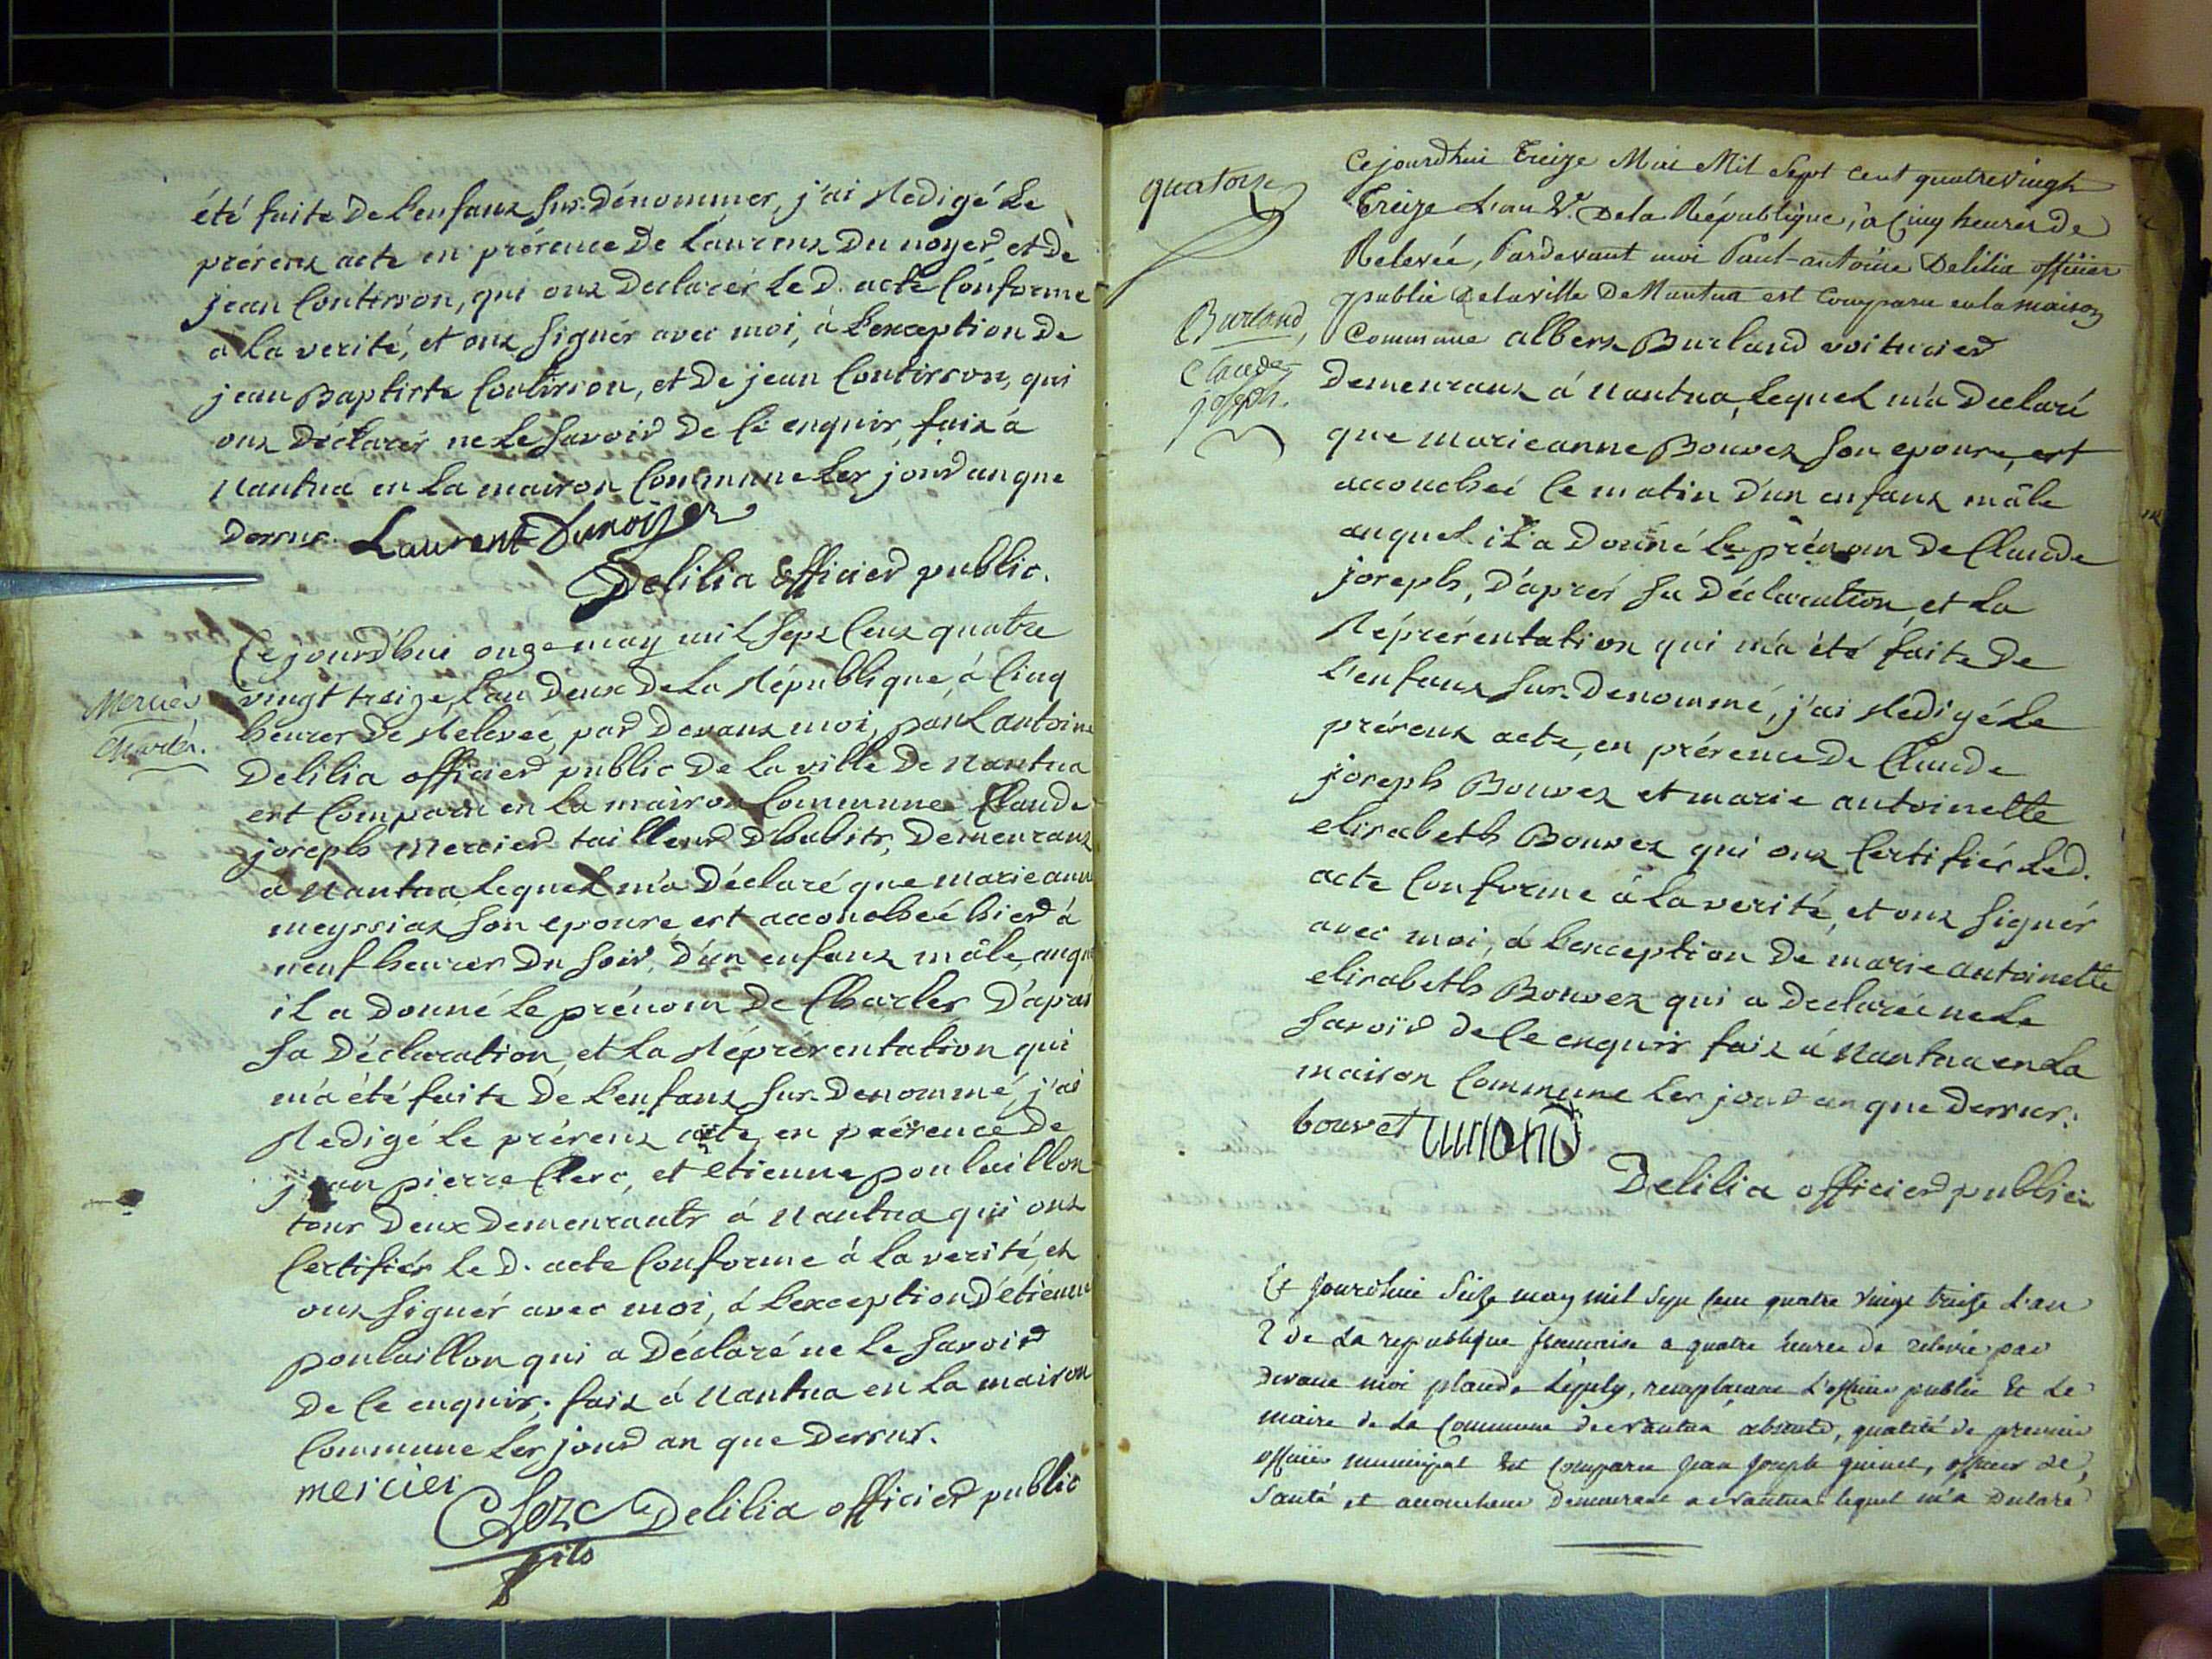 été faite De l'enfant sus-dénommer, j'ai Redigé Le
présent acte en présence De Laurent Du noyer, et De
jean Contirson, qui ont Declarés Le D. acte Conforme
a La verité, et ont signés avec moi, à L'exception De
jean Baptiste Contirson, et De jean Contirson, qui
ont Déclarés ne Le savoir De Ce enquis, fait à
Nantua en La maison Commune Les jour an que
Dessus. Laurent Dunoijer
Delilia officier public.
Cejourd'hui onze may mil sept Cent quatre
vingt treize, L'an Deux De La République, à Cinq
heures De Relevée, par Devant moi, paul antoine
Delilia officier public De La ville De Nantua
est Comparu en La maison Commune Claude
joseph Mercier tailleur D'habits, Demeurant
a Nantua Lequel m'a Déclaré que marie anne
meyssiat son epouse est accouchée hier à
neuf heures Du soir, D'un enfant mâle, auquel
il a Donné Le prénom De Charles, D'apres
sa Déclaration, et La Réprésentation qui
m'a été faite De L'enfant sus-Denommé, j'ai
Redigé Le présent acte, en présence De
jean pierre Clerc, et etienne poulaillon
tous Deux Demeurants à Nantua qui ont
Certifiés Le D. acte Conforme à La verité, et
ont signés avec moi, à L'exception D'étienne
poulaillon qui a Déclaré ne Le savoir
De Ce enquis; fait à Nantua en La maison
Commune Les jour an que Dessus.
mercier
Clerc Delilia officier public
fils
Mercier
Charles.
quatorze
Burland,
Claude
joseph.
Cejourd'hui Treize Mai Mil Sept Cent quatrevingt
Treize L'an 2e. De la République, à Cinq heures de
Relevée, Pardevant moi Paul-antoine Delilia officier
public De la ville De Nantua est Comparu en la maison
Commune albert Burland voiturier
Demeurant à Nantua, Lequel m'a Declaré
que marieanne Bouvet son epouse, est
accouchée Ce matin D'un enfant mâle
auquel il a Donné Le prénom De Claude
joseph, D'après sa Déclaration, et La
Réprésentation qui m'a été faite De
L'enfant sus-Denommé, j'ai Redigé Le
présent acte, en présence De Claude
joseph Bouvet et marie antoinette
elisabeth Bouvet qui ont Certifiés Led.
acte Conforme à La verité, et ont signés
avec moi, à L'exception De marie antoinette
elisabeth Bouvet qui a Declarée ne Le
savoir de Ce enquis fait à Nantua en La
maison Commune Les jour an que Dessus.
bouvet
Delilia officier public
Ce Jourdhui Seize may mil Sept Cent quatre vingt treize L'an
2 de La republique francaise a quatre heures de relevée par
devant moi remplacant L'officier public Et Le
maire de La Commune de Nantua absents, qualité de premier
officier municipal Est Comparu Jean Joseph guinet, officier de
Santé et accoucheur Demeurant a Nantua lequel m'a Déclaré